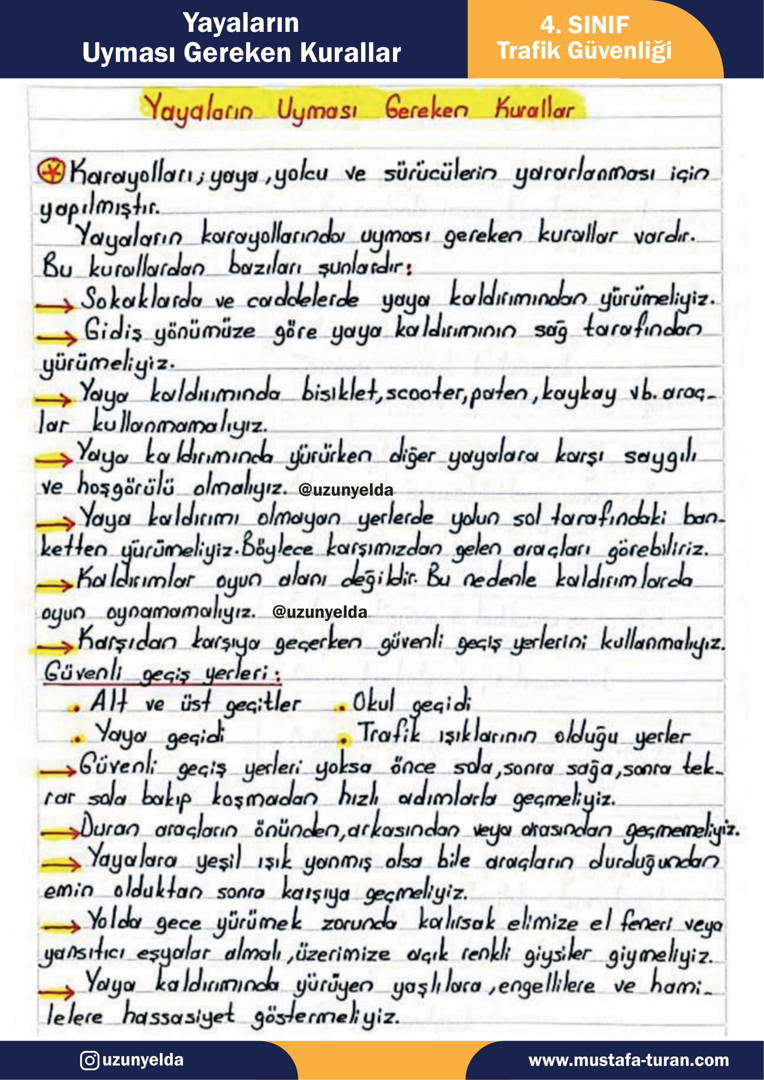 Yayaların
Uyması Gereken Kurallar
4. SINIF
Trafik Güvenliği
Yayaların Uyması Gereken Kurallar
Karayolları; yaya, yolcu ve sürücülerin yararlanması için
yapılmıştır.
Yayaların karayollarında uyması gereken kurallar vardır.
Bu kurallardan bazıları şunlardır:
→ Sokaklarda ve caddelerde yaya kaldırımından yürümeliyiz.
→ Gidiş yönümüze göre yaya kaldırımının sağ tarafından
yürümeliyiz.
→ Yaya kaldırımında bisiklet, scooter, paten, kaykay vb. araç-
lar kullanmamalıyız.
→ Yaya kaldırımında yürürken diğer yayalara karşı saygılı
ve hoşgörülü olmalıyız. @uzunyelda
→ Yaya kaldırımı olmayan yerlerde yolun sol tarafındaki ban-
ketten yürümeliyiz. Böylece karşımızdan gelen araçları görebiliriz.
→ Kaldırımlar oyun alanı değildir. Bu nedenle kaldırımlarda
oyun oynamamalıyız. @uzunyelda
→ Karşıdan karşıya geçerken güvenli geçiş yerlerini kullanmalıyız.
Güvenli geçiş yerleri:
• Alt ve üst geçitler • Okul geçidi
• Yaya geçidi • Trafik ışıklarının olduğu yerler
→ Güvenli geçiş yerleri yoksa önce sola, sonra sağa, sonra tek-
rar sola bakıp koşmadan hızlı adımlarla geçmeliyiz.
→ Duran araçların önünden, arkasından veya arasından geçmemeliyiz.
→ Yayalara yeşil ışık yanmış olsa bile araçların durduğundan
emin olduktan sonra karşıya geçmeliyiz.
→ Yolda gece yürümek zorunda kalırsak elimize el feneri veya
yansıtıcı eşyalar almalı, üzerimize açık renkli giysiler giymeliyiz.
→ Yaya kaldırımında yürüyen yaşlılara, engellilere ve hami-
lelere hassasiyet göstermeliyiz.
uzunyelda
www.mustafa-turan.com